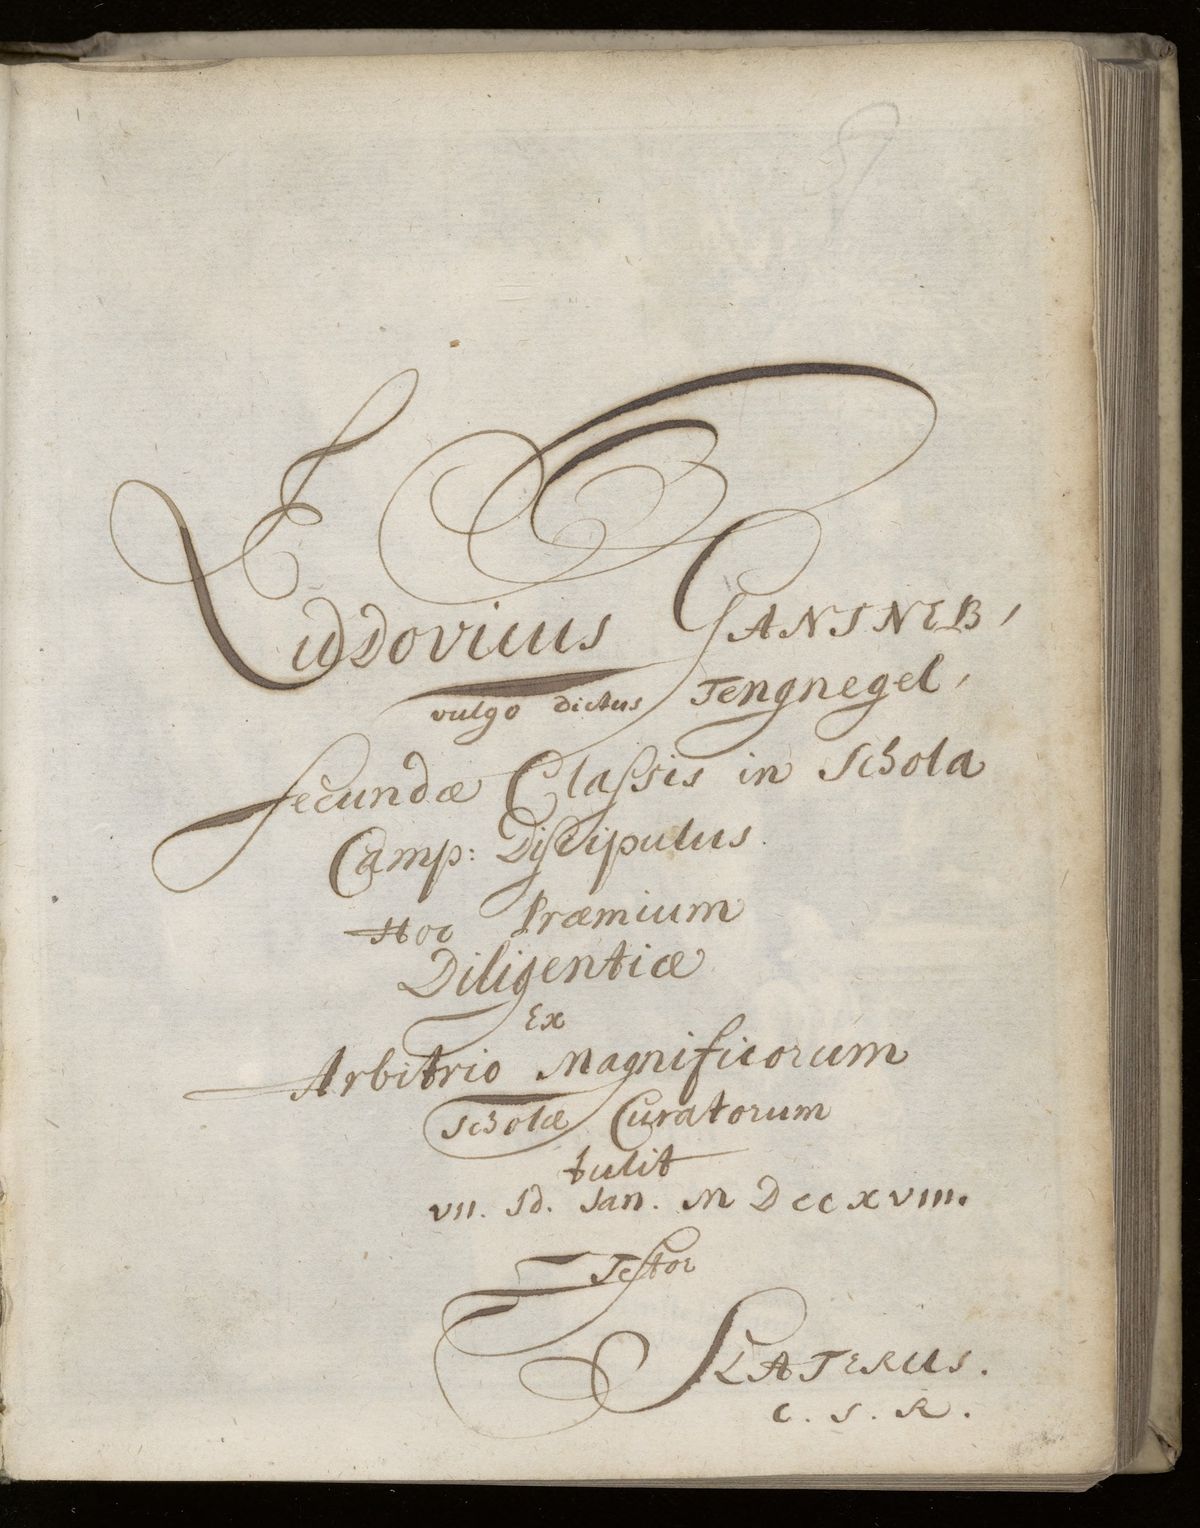 Ludovicus GANSNEB,
vulgo dictus Tengnegel,
secundæ Classis in Schola
Camp: Discipulus.
Hoc Præmium
Diligentiæ
Ex
Arbitrio Magnificorum
Scholæ Curatorum
tulit
VII. Id. Jan. MDCCXVIII.
Testor
SLATERUS.
C. S. R.